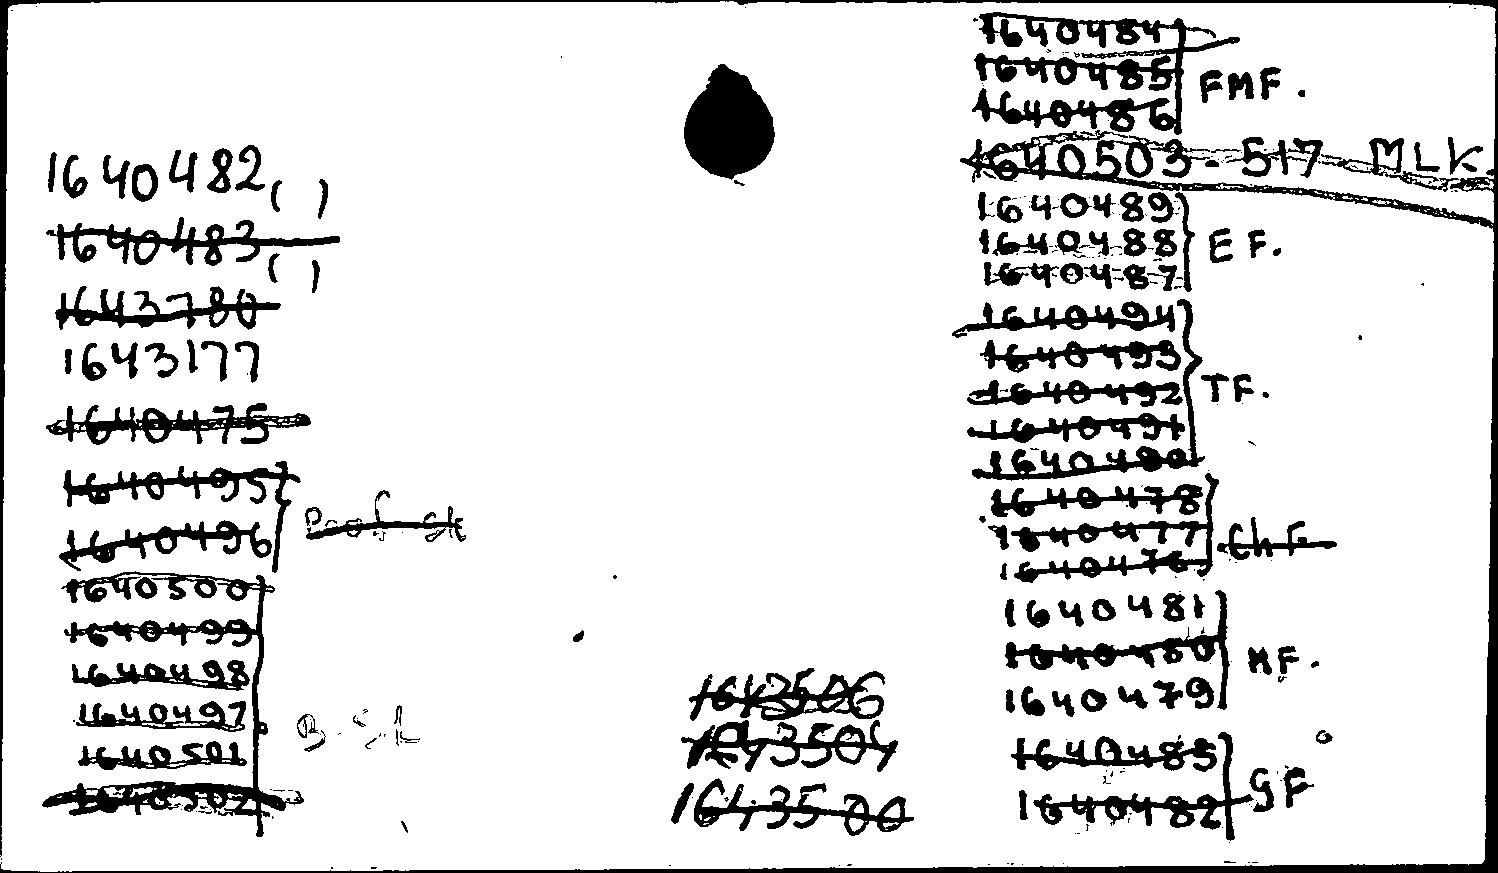 1640482 ( )
1640483 ( )
1643780
1643177
1640475
1640495
1640496
1640500
1640499
1640498
1640497
B.S.L
1640501
1640502
1643506
1643504
1643500
1640484
1640485
1640486
FMF.
1640503 - 517 MLK.
1640489
1640488
1640487
EF.
1640494
1640493
1640492
1640491
1640490
TF.
1640478
1640477
1640476
Chf.
1640481
1640480
1640479
MF.
1640483
1640482
GF